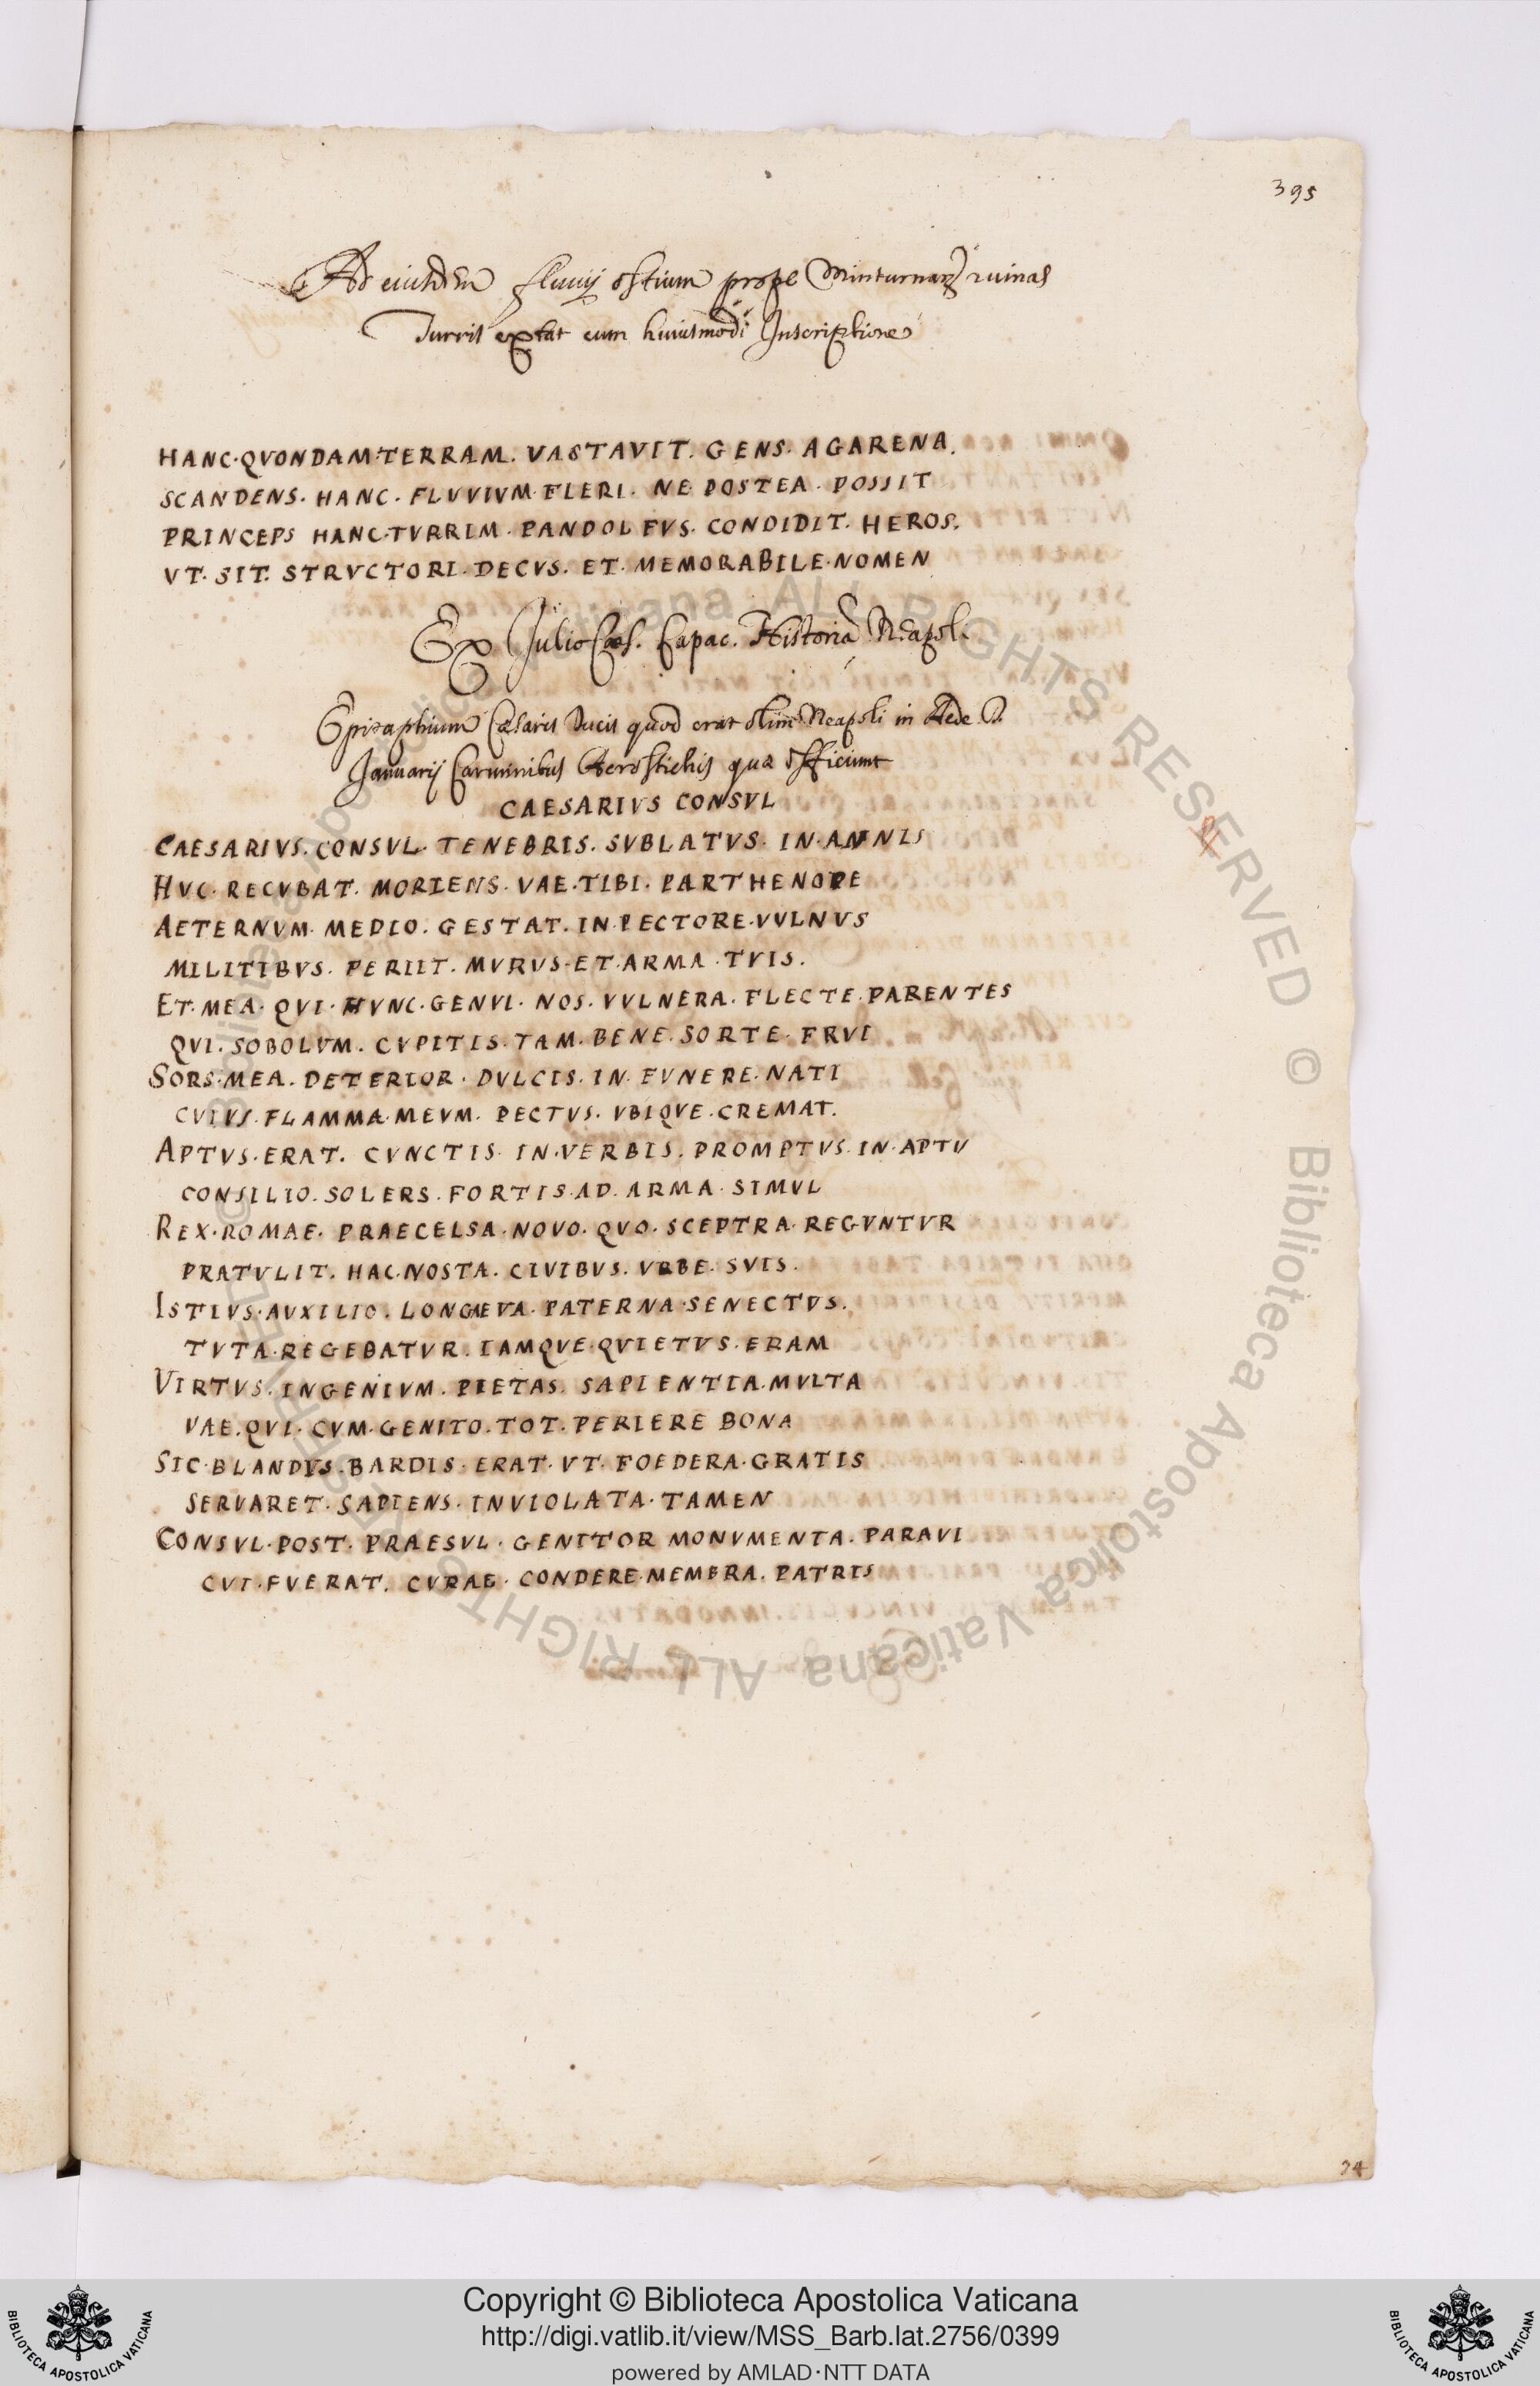 395
Ad eiusdem fluuij ostium prope Minturnarꝝ ruinas
Turris extat cum huiusmodi Inscriptione
HANC·QVONDAM·TERRAM. VASTAVIT. GENS. AGARENA.
SCANDENS. HANC. FLVVIVM·FLERI. NE POSTEA. POSSIT
PRINCEPS HANC·TVRRIM. PANDOLFVS. CONDIDIT. HEROS.
VT. SIT. STRVCTORI. DECVS. ET. MEMORABILE·NOMEN
Ex Iulio Cæs. Capac. Historia Neapol.
Epitaphium Cæsaris Ducis quod erat olim Neapoli in Æde D.
Ianuarij Carminibus Acrostichis quæ officiunt
CAESARIVS CONSVL
CAESARIVS. CONSVL. TENEBRIS. SVBLATVS. IN·ANNIS
HVC. RECVBAT. MORIENS. VAE. TIBI. PARTHENOPE
AETERNVM. MEDIO. GESTAT. IN·PECTORE·VVLNVS
MILITIBVS. PERIIT. MVRVS·ET·ARMA·TVIS.
ET·MEA·QVI·HVNC·GENVI. NOS. VVLNERA. FLECTE·PARENTES
QVI. SOBOLVM. CVPITIS. TAM. BENE. SORTE. FRVI
SORS·MEA. DETERIOR. DVLCIS. IN. FVNERE. NATI
CVIVS. FLAMMA·MEVM. PECTVS. VBIQVE. CREMAT.
APTVS·ERAT. CVNCTIS. IN·VERBIS. PROMPTVS. IN·APTV
CONSILIO. SOLERS. FORTIS·AD. ARMA·SIMVL
REX·ROMAE. PRAECELSA·NOVO. QVO. SCEPTRA·REGVNTVR
PRATVLIT. HAC·NOSTA. CIVIBVS. VRBE. SVIS.
ISTIVS·AVXILIO. LONGÆVA. PATERNA·SENECTVS.
TVTA·REGEBATVR. IAMQVE·QVIETVS. ERAM
VIRTVS. INGENIVM. PIETAS. SAPIENTIA. MVLTA
VAE. QVI. CVM·GENITO. TOT. PERIERE BONA
SIC·BLANDVS. BARDIS. ERAT. VT. FOEDERA·GRATIS
SERVARET. SAPIENS. INVIOLATA·TAMEN
CONSVL·POST. PRAESVL. GENITOR MONVMENTA. PARAVI
CVI·FVERAT. CVRAE. CONDERE·MEMBRA. PATRIS
© Biblioteca Apostolica Vaticana ALL RIGHTS RESERVED © Biblioteca Apostolica Vaticana ALL RIGHTS RESERVED
Copyright © Biblioteca Apostolica Vaticana
http://digi.vatlib.it/view/MSS_Barb.lat.2756/0399
powered by AMLAD·NTT DATA
BIBLIOTECA APOSTOLICA VATICANA
BIBLIOTECA APOSTOLICA VATICANA